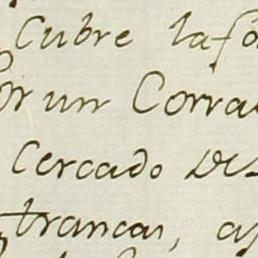 Cubre la
Por un Corra
Cercado de
trancas, a